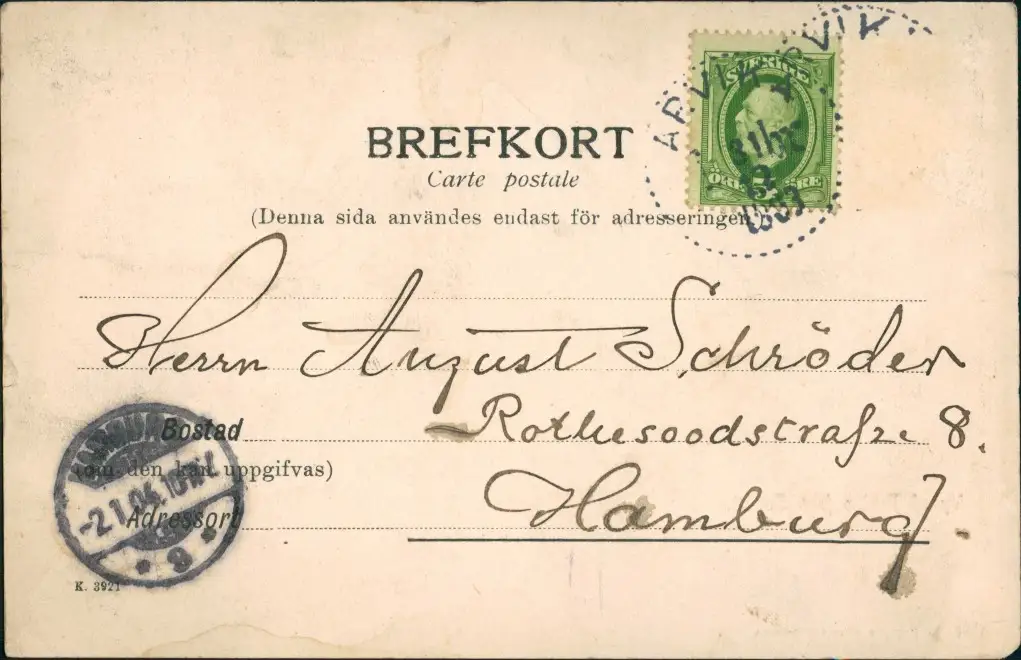 BREFKORT
Carte postale
(Denna sida användes endast för adresseringen.)
ARVIKA
SVERIGE
31
12
1903
ÖRE
Herrn August Schröder
Rothesoodstraße 8.
Hamburg
Bostad
(om den kan uppgifvas)
Adressort
HAMBURG
-2.1.04.10
K. 3921